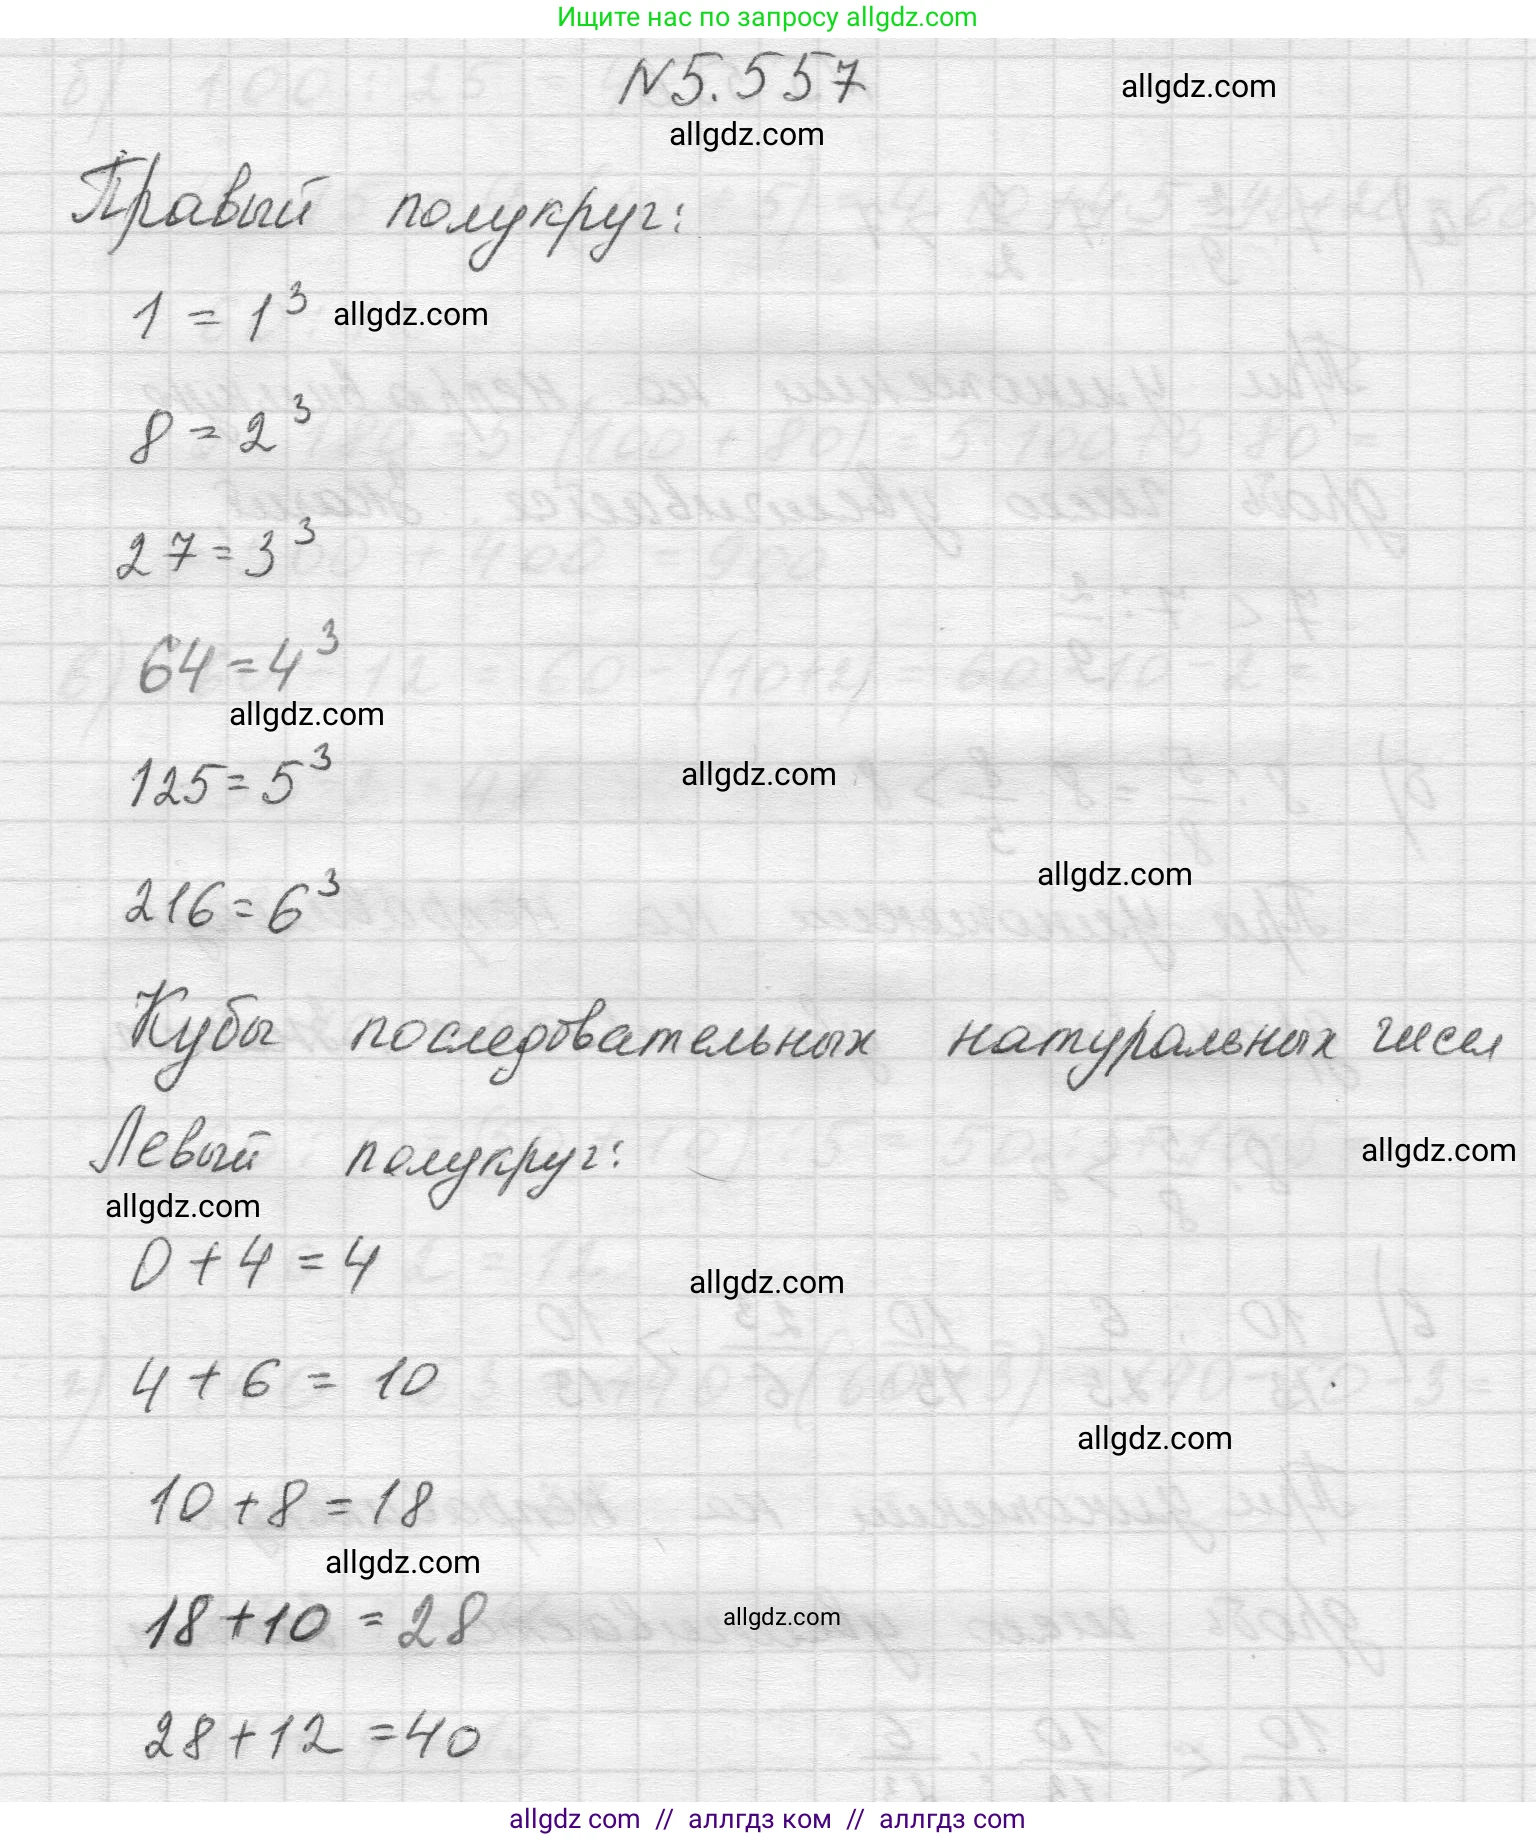 Ищите нас по запросу allgdz.com
N5.557
allgdz.com
allgdz.com
Правый полукруг:
1 = 1³
allgdz.com
8 = 2³
27 = 3³
64 = 4³
allgdz.com
125 = 5³
allgdz.com
216 = 6³
allgdz.com
Кубы последовательных натуральных чисел
Левый полукруг:
allgdz.com
allgdz.com
0 + 4 = 4
allgdz.com
4 + 6 = 10
allgdz.com
10 + 8 = 18
allgdz.com
18 + 10 = 28
allgdz.com
28 + 12 = 40
allgdz com // аллгдз ком // аллгдз com